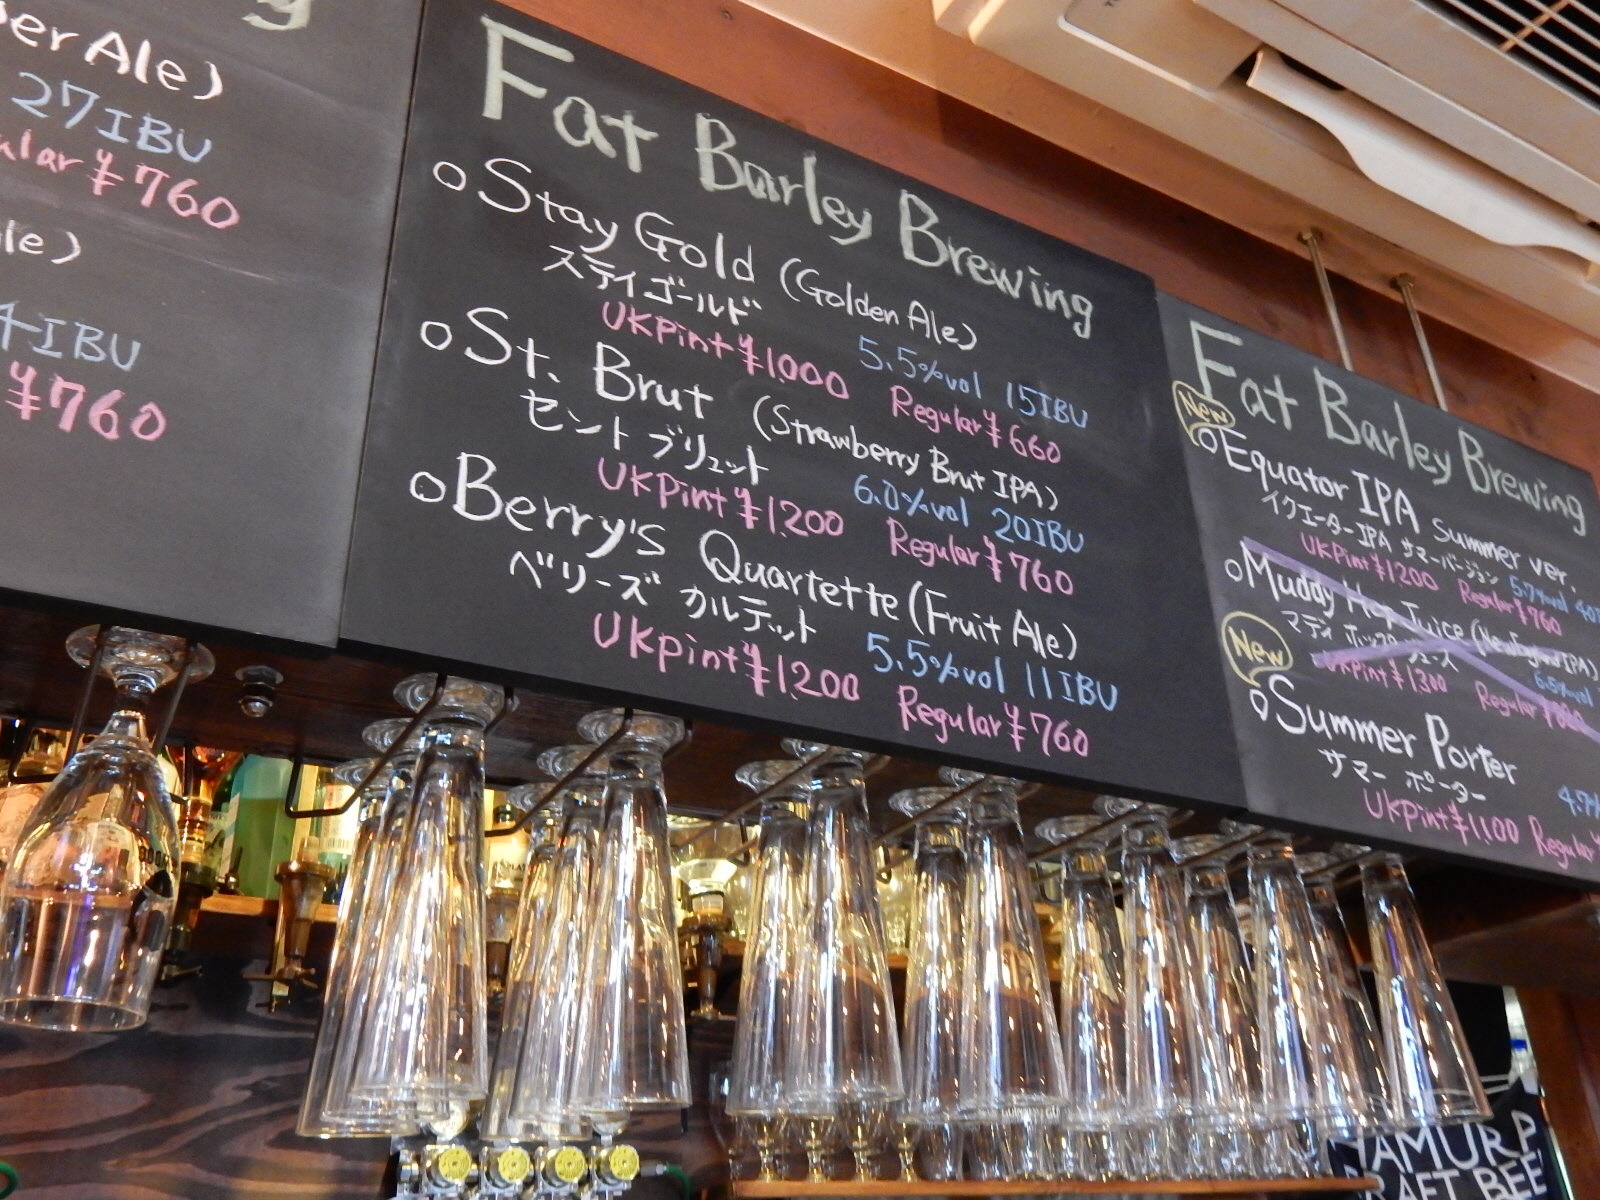 er Ale)
27IBU
ular ¥760
le)
4IBU
¥760
Fat Barley Brewing
o Stay Gold (Golden Ale)
ステイゴールド
5.5%vol 15IBU
UKPint ¥1,000 Regular ¥660
o St. Brut (Strawberry Brut IPA)
セント ブリュット
6.0%vol 20IBU
UKPint ¥1200 Regular ¥760
o Berry's Quartette (Fruit Ale)
ベリーズ カルテット
5.5%vol 11IBU
UKpint ¥1200 Regular ¥760
Fat Barley Brewing
New
o Equator IPA Summer ver.
イクエーターIPA サマーバージョン 5.7%vol
UKPint ¥1200 Regular ¥760
o Muddy Hop Juice (NewEngland IPA)
マディ ホップ ジュース
UKPint ¥1300 Regular
New
o Summer Porter
サマー ポーター
UKPint ¥1,100 Regular